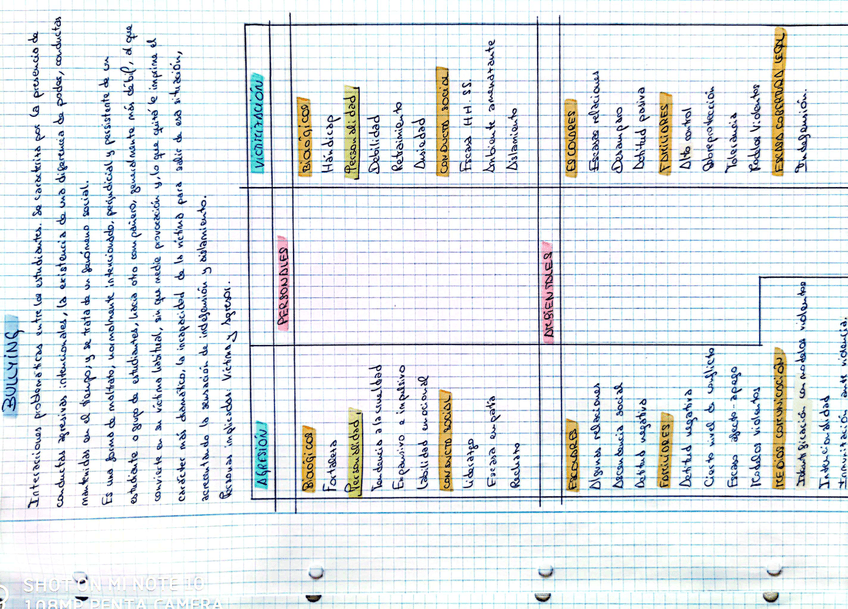 BULLYING
Interacciones problemáticas entre los estudiantes. Se caracteriza por la presencia de
conductas agresivas intencionales, la existencia de una diferencia de poder, conductas
mantenidas en el tiempo, y se trata de un fenómeno social.
Es una forma de maltrato, normalmente intencionado, perjudicial y persistente de un
estudiante o grupo de estudiantes, hacia otro compañero, generalmente más débil, al que
convierte en su víctima habitual, sin que medie provocación y, lo que quizá le imprime el
carácter más dramático, la incapacidad de la víctima para salir de esa situación,
acrecentando la sensación de indefensión y aislamiento.
Personas implicadas: Víctima y Agresor.
AGRESIÓN
VICTIMIZACIÓN
PERSONALES
BIOLÓGICOS
Fortaleza
Personalidad
Tendencia a la crueldad
Expansivo e impulsivo
Labilidad emocional
CONDUCTA SOCIAL
Liderazgo
Escasa empatía
Rechazo
BIOLÓGICOS
Hándicap
Personalidad
Debilidad
Retraimiento
Ansiedad
CONDUCTA SOCIAL
Escasa HH.SS.
Ambiente amenazante
Aislamiento
AMBIENTALES
ESCOLARES
Algunas relaciones
Ascendencia social
Actitud negativa
FAMILIARES
Actitud negativa
Cierto nivel de conflicto
Escaso afecto-apego
Modelos violentos
MEDIOS COMUNICACIÓN
Identificación con modelos violentos
Intencionalidad
Inmunización ante violencia.
ESCOLARES
Escasas relaciones
Desamparo
Actitud pasiva
FAMILIARES
Alto control
Sobreprotección
Tolerancia
Modelos violentos
ESCASA COBERTURA LEGAL
Indefensión.
SHOT ON MI NOTE 10
108MP PENTA CAMERA